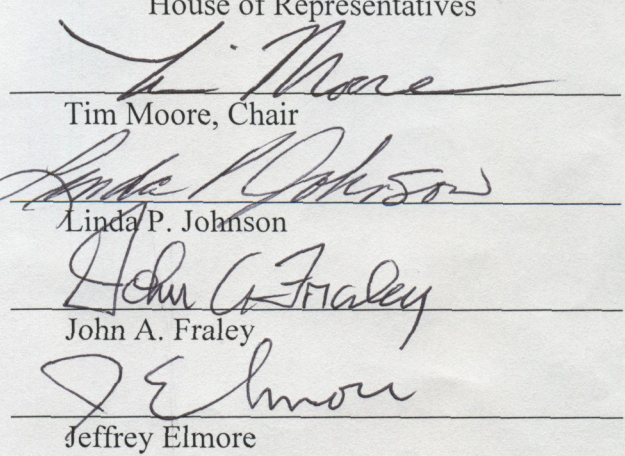 House of Representatives
Tim Moore
Tim Moore, Chair
Linda P. Johnson
Linda P. Johnson
John A. Fraley
John A. Fraley
J Elmore
Jeffrey Elmore